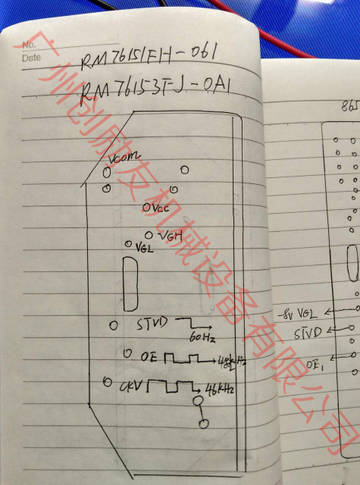 No.
Date
RM76151EH-061
RM76153FJ-0A1
865
VCOM
VCC
VGH
VGL
-8V VGL
STVD
60Hz
STVD
OE
48kHz
OE1
CKV
48kHz
广州创励友机械设备有限公司